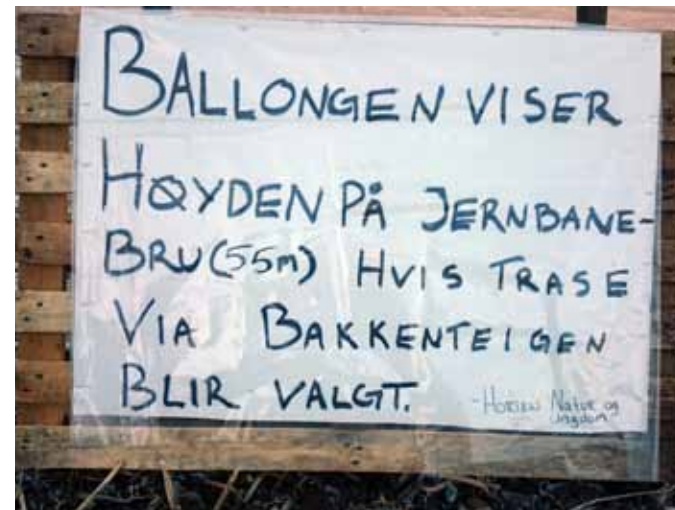 BALLONGEN VISER
HØYDEN PÅ JERNBANE-
BRU (55m) HVIS TRASE
VIA BAKKENTEIGEN
BLIR VALGT.
Natur og
Ungdom-